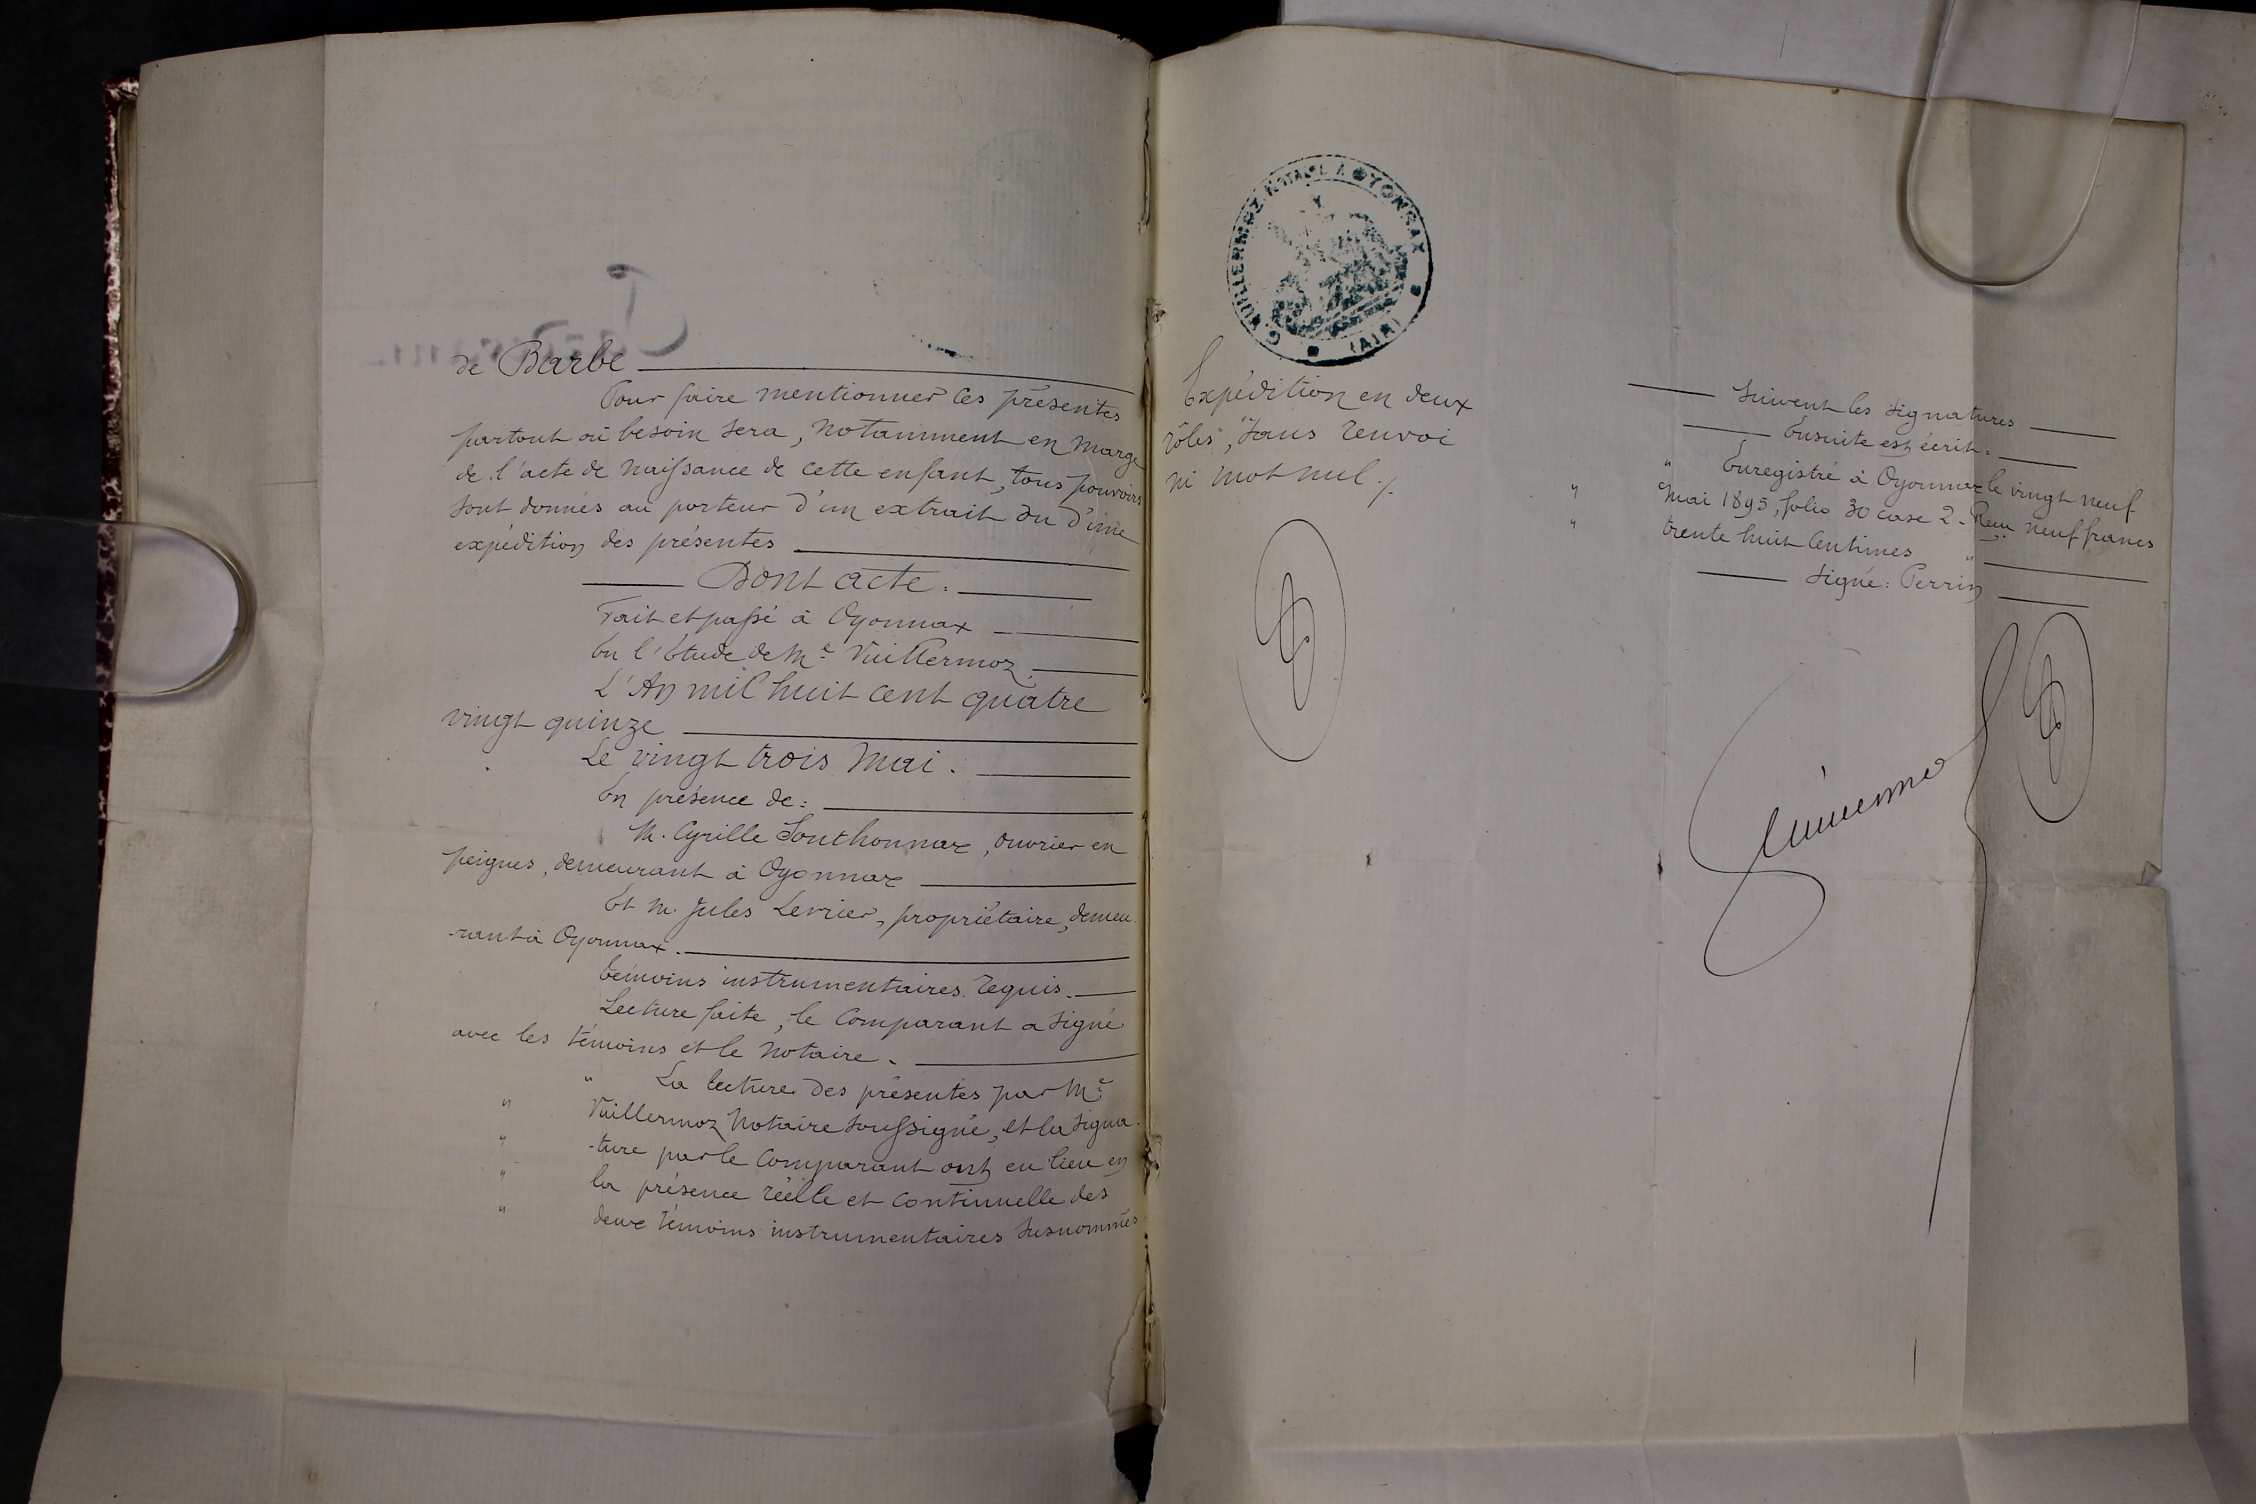 de Barbe
Pour faire mentionner les présentes
partout où besoin sera, notamment en marge
de l'acte de naissance de cette enfant, tous pouvoirs
sont donnés au porteur d'un extrait ou d'une
expédition des présentes
Dont acte.
Fait et passé à Oyonnax
En l'étude de Me Vuillermoz
L'An mil huit cent quatre
vingt quinze
Le vingt trois Mai.
En présence de:
M. Cyrille Sonthonnax, ouvrier en
peignes, demeurant à Oyonnax
Et M. Jules Levrier, propriétaire, demeu-
-rant à Oyonnax.
témoins instrumentaires requis.
Lecture faite, le Comparant a signé
avec les témoins et le Notaire.
" La lecture des présentes par Me
" Vuillermoz Notaire soussigné, et la signa-
" -ture par le Comparant ont eu lieu en
" la présence réelle et continuelle des
" deux témoins instrumentaires susnommés
G. VUILLERMOZ NOTAIRE A OYONNAX
(AIN)
Expédition en deux
rôles, sans renvoi
ni mot nul ./.
Suivent les signatures
Ensuite est écrit.
" Enregistré à Oyonnax le vingt neuf
" Mai 1895, folio 30 case 2 - Reçu neuf francs
" trente huit Centimes "
Signé: Perrin